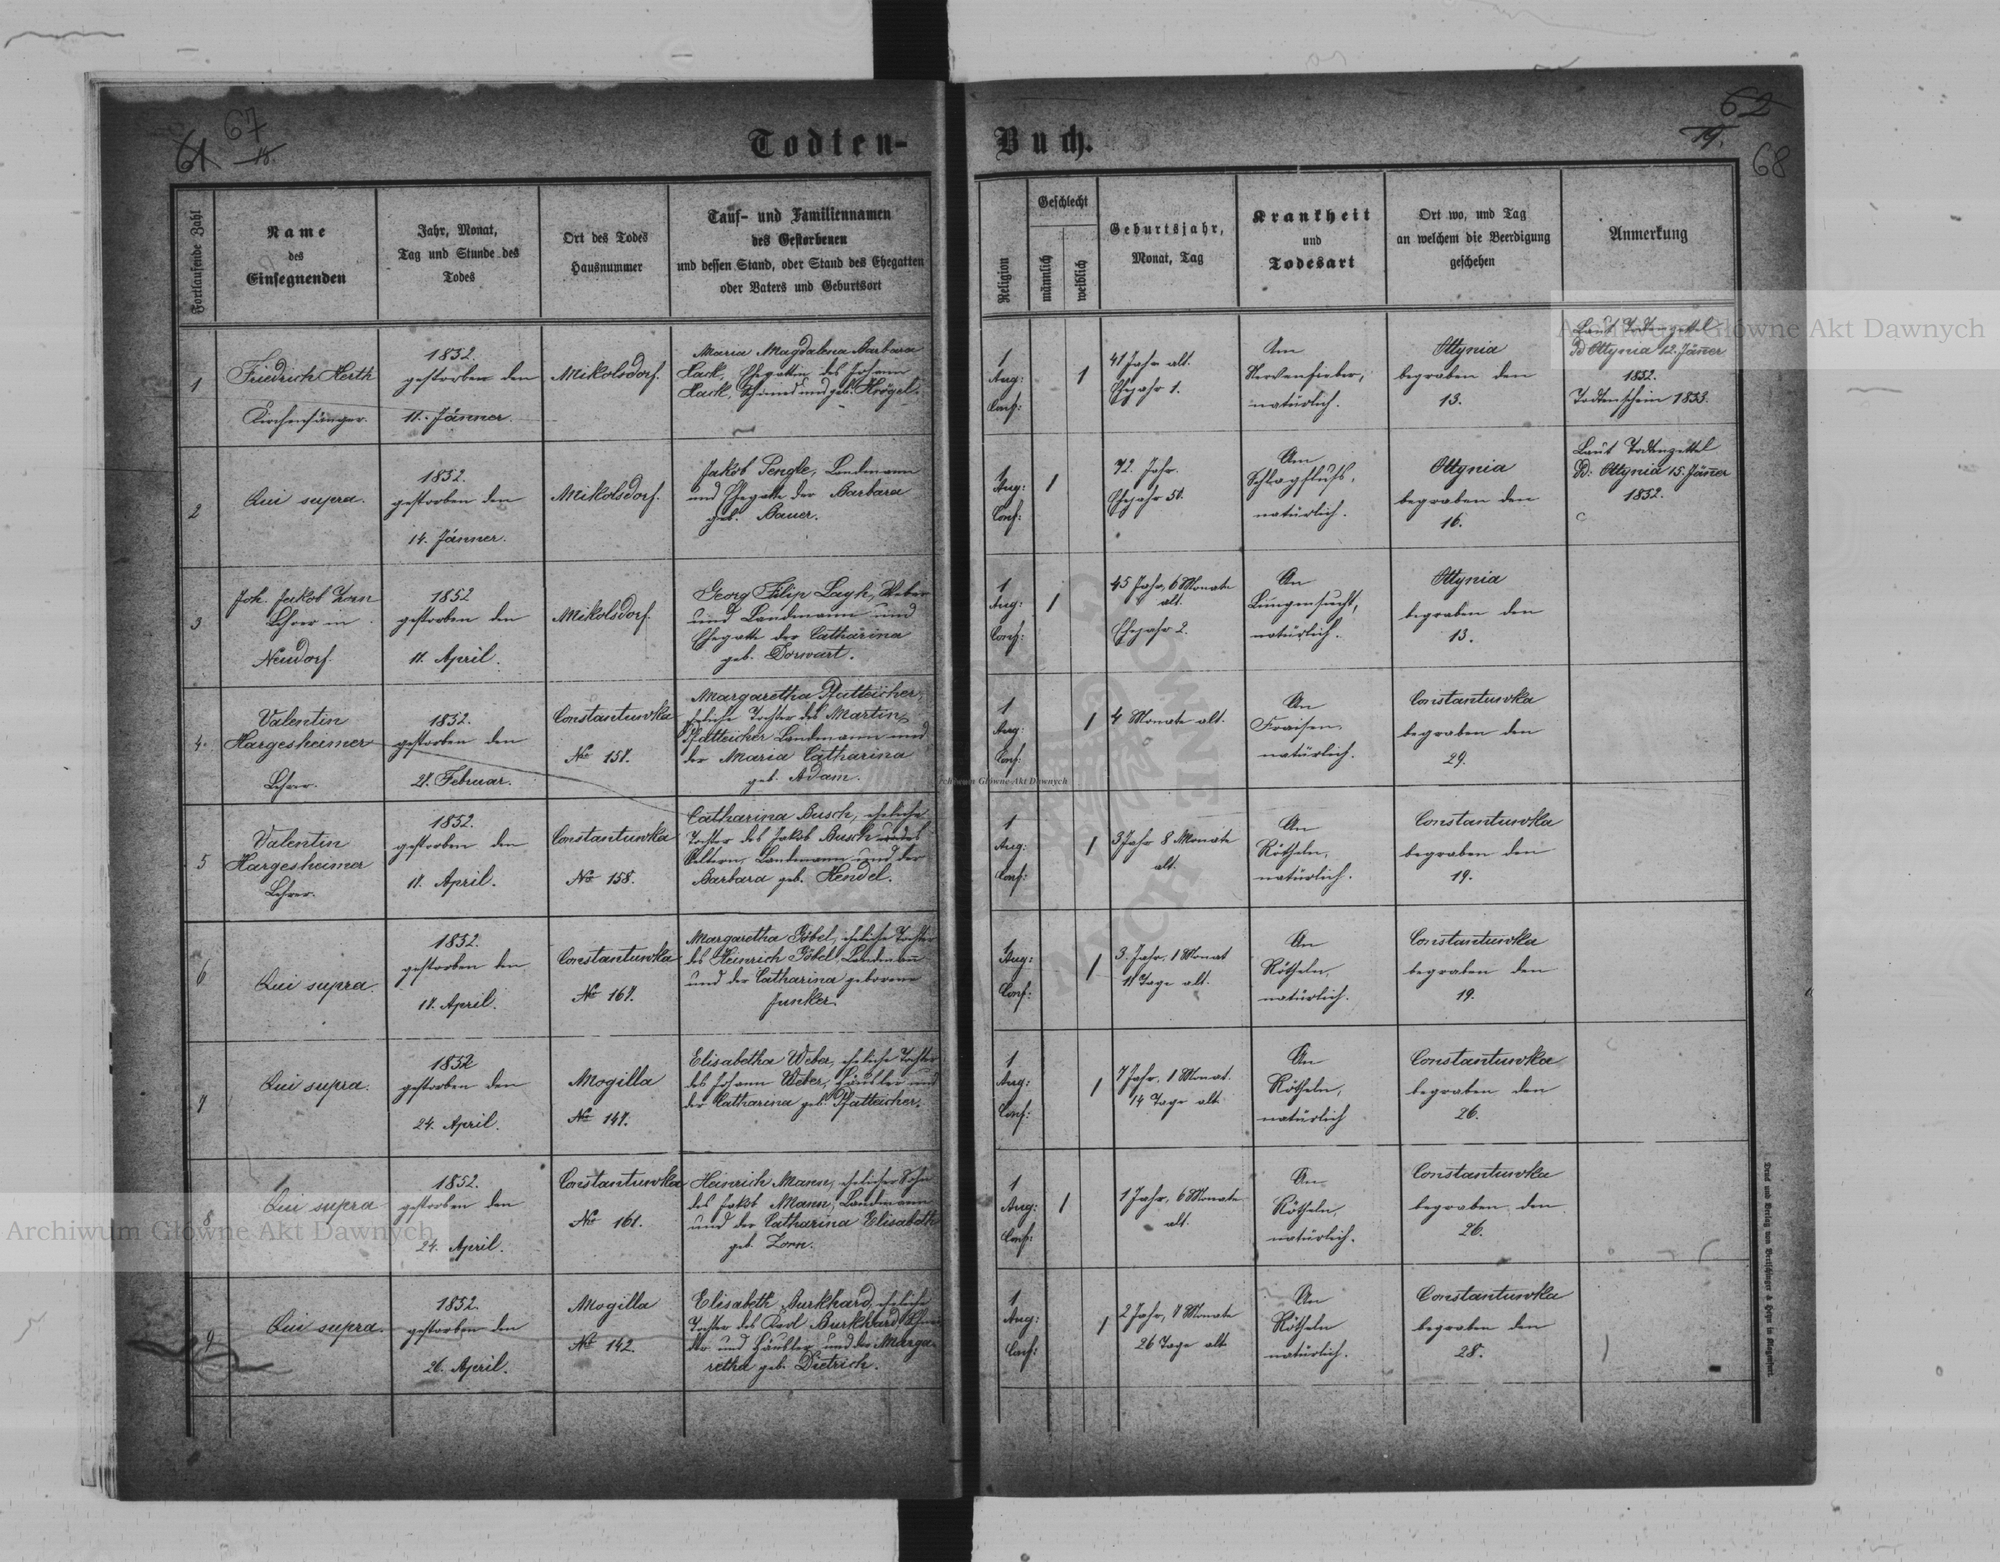 67
61
18.
62
19.
68
Todten-Buch.
Fortlaufende Zahl
Name
des
Einsegnenden
Jahr, Monat,
Tag und Stunde des
Todes
Ort des Todes
Hausnummer
Tauf- und Familiennamen
des Gestorbenen
und dessen Stand, oder Stand des Ehegatten
oder Vaters und Geburtsort
Religion
Geschlecht
männlich
weiblich
Geburtsjahr,
Monat, Tag
Krankheit
und
Todesart
Ort wo, und Tag
an welchem die Beerdigung
geschehen
Anmerkung
1
Friedrich Herth
Kirchensänger.
1852.
gestorben den
11. Jänner.
Mikolsdorf.
Maria Magdalena Barbara
Hack, Ehegattin des Johann
Hack, Schmied und geb. Krögel.
1
Aug:
Conf:
1
41 Jahr alt.
Ehejahr 1.
Am
Nervenfieber,
natürlich.
Ottynia
begraben den
13.
Laut Todtenzettel
Ottynia 12. Jäner
1852.
Todtenschein 1833.
2
Qui supra.
1852.
gestorben den
14. Jänner.
Mikolsdorf.
Jakob Sengle, Landmann
und Ehegatte der Barbara
geb. Bauer.
Aug:
Conf:
1
72. Jahr.
Ehejahr 51.
Am
Schlagfluß,
natürlich.
Ottynia
begraben den
16.
Laut Todtenzettel
Ottynia 15. Jäner
1852.
3
Joh. Jakob Zorn
Lehrer in
Neudorf.
1852
gestorben den
11. April.
Mikolsdorf.
Georg Filip Layh, Weber
und Landmann und
Ehegatte der Catharina
geb. Dorwart.
1
Aug:
Conf:
1
45 Jahr, 6 Monate
alt.
Ehejahr 2.
An
Lungensucht,
natürlich.
Ottynia
begraben den
13.
4.
Valentin
Hargesheimer
Lehrer.
1852.
gestorben den
27. Februar.
Constantuwka
No 157.
Margaretha Pfatteicher,
eheliche Tochter des Martin
Pfatteicher Landmann und
der Maria Catharina
geb. Adam.
1
Aug:
Conf:
1
4 Monate alt.
An
Fraisen,
natürlich.
Constantuwka
begraben den
29.
5
Valentin
Hargesheimer
Lehrer.
1852.
gestorben den
17. April.
Constantuwka
No 158.
Catharina Busch, eheliche
Tochter des Jakob Busch
Landmann und der
Barbara geb. Hendel.
1
Aug:
Conf:
1
3 Jahr 8 Monate
alt.
An
Rötheln,
natürlich.
Constantuwka
begraben den
19.
6
Qui supra.
1852.
gestorben den
17. April.
Constantuwka
No 167.
Margaretha Göbel, eheliche Tochter
des Heinrich Göbel, Landmann
und der Catharina geborene
Junker.
1
Aug:
Conf:
1
3. Jahr, 1 Monat
11 Tage alt.
An
Rötheln,
natürlich.
Constantuwka
begraben den
19.
7
Qui supra.
1852
gestorben den
24. April.
Mogilla
No 147.
Elisabetha Weber, eheliche Tochter
des Johann Weber, Häusler und
der Catharina geb. Pfatteicher.
1
Aug:
Conf:
1
7 Jahr, 1 Monat.
14 Tage alt
An
Rötheln,
natürlich
Constantuwka
begraben den
26.
8
Qui supra
1852.
gestorben den
24. April.
Constantuwka
No 161.
Heinrich Mann, ehelicher Sohn
des Jakob Mann, Landmann
und der Catharina Elisabeth
geb. Zorn.
1
Aug:
Conf:
1
1 Jahr, 6 Monate
alt.
An
Rötheln,
natürlich.
Constantuwka
begraben den
26.
9
Qui supra.
1852.
gestorben den
26. April.
Mogilla
No 142.
Elisabeth Burkhard, eheliche
Tochter des Karl Burkhard, Schnei-
der und Häusler und der Marga-
retha geb. Dietrich.
1
Aug:
Conf:
1
2 Jahr, 7 Monate
26 Tage alt
An
Rötheln
natürlich.
Constantuwka
begraben den
28.
Archiwum Główne Akt Dawnych
Archiwum Główne Akt Dawnych
Archiwum Główne Akt Dawnych